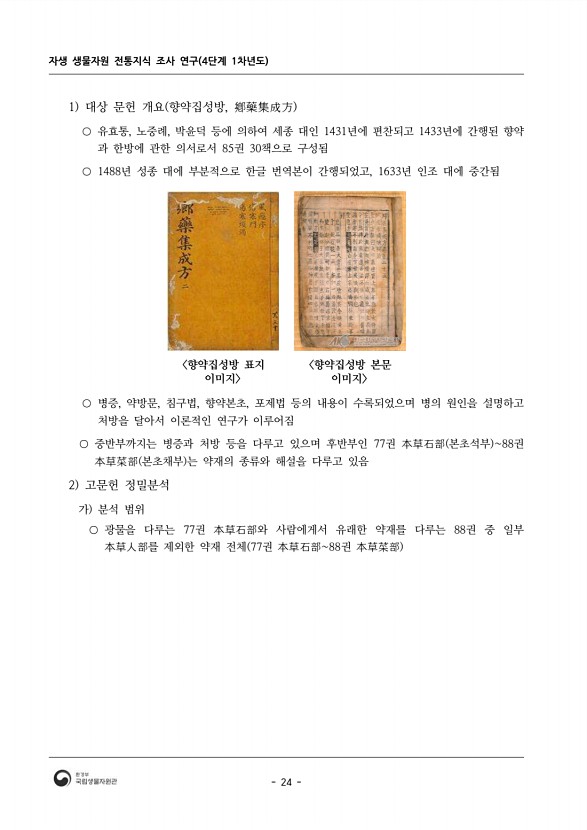 자생 생물자원 전통지식 조사 연구(4단계 1차년도)
1) 대상 문헌 개요(향약집성방, 鄕藥集成方)
○ 유효통, 노중례, 박윤덕 등에 의하여 세종 대인 1431년에 편찬되고 1433년에 간행된 향약
과 한방에 관한 의서로서 85권 30책으로 구성됨
○ 1488년 성종 대에 부분적으로 한글 번역본이 간행되었고, 1633년 인조 대에 중간됨
鄕藥集成方 二
<향약집성방 표지
이미지>
<향약집성방 본문
이미지>
○ 병증, 약방문, 침구법, 향약본초, 포제법 등의 내용이 수록되었으며 병의 원인을 설명하고
처방을 달아서 이론적인 연구가 이루어짐
○ 중반부까지는 병증과 처방 등을 다루고 있으며 후반부인 77권 本草石部(본초석부)~88권
本草菜部(본초채부)는 약재의 종류와 해설을 다루고 있음
2) 고문헌 정밀분석
가) 분석 범위
○ 광물을 다루는 77권 本草石部와 사람에게서 유래한 약재를 다루는 88권 중 일부
本草人部를 제외한 약재 전체(77권 本草石部~88권 本草菜部)
환경부
국립생물자원관
- 24 -